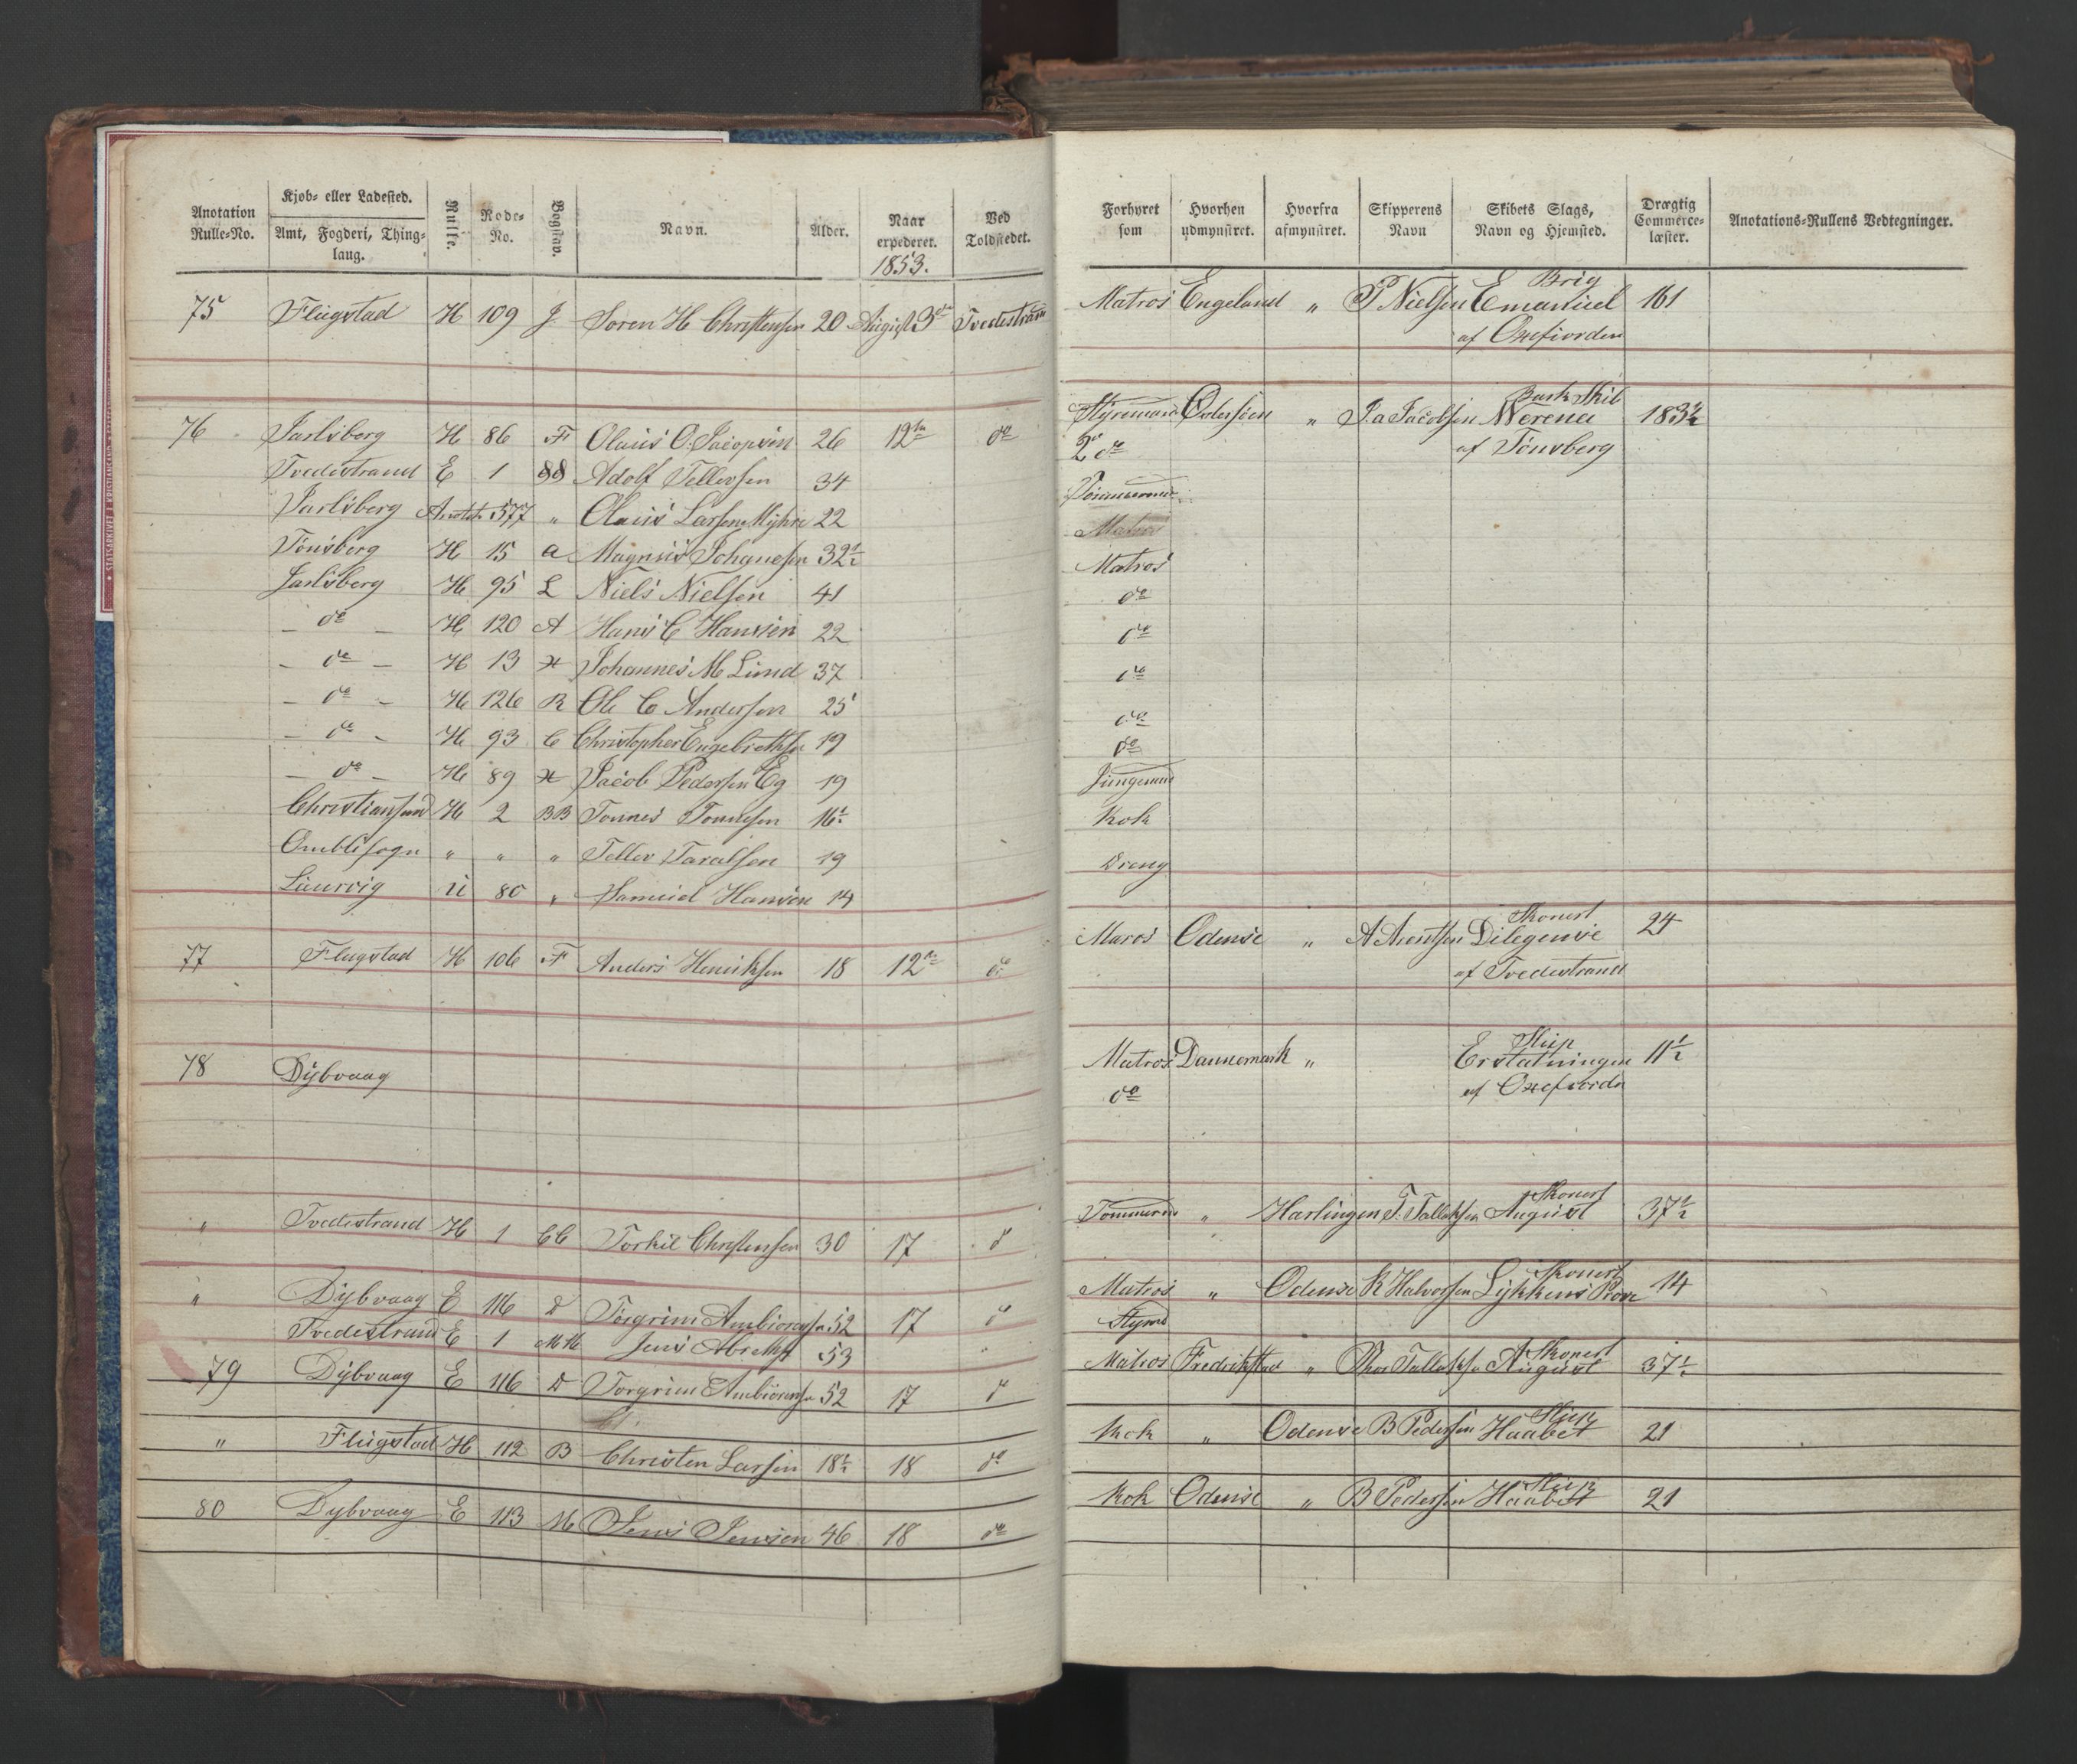 Anotation Rulle-No. | Kjøb- eller Ladested. Amt, Fogderi, Thinglaug. | Rulle. | Rode-No. | Bogstav. | Navn. | Alder. | Naar expederet. 1853. | Ved Toldstedet.
75 Flugstad H 109 J Soren H Christensen 20 August 3de Tvedestrand
76 Jarlsberg H 86 F Olaus O. Jacopsen 26 12te do
Tvedestrand E 1 88 Adolf Tellevsen 34
Jarlsberg 577 " Olaus Larsen Myhre 22
Tönsberg H 15 a Magnus Johanesen 32½
Jarlsberg H 95 L Niels Nielsen 41
— do — H 120 A Hans C Hansen 22
— do — H 13 Johannes M Lund 37
— do — H 126 R Ole C Andersen 25
— do — H 93 C Christopher Engebrethsen 19
— do — H 89 Jacob Pedersen Eg 19
Christiansund H 2 BB Tonnes Tonnesen 16½
Omblisogn " " " Tellev Taralsen 19
Laurvig U 80 " Samuel Hansen 14
77 Flugstad H 106 F Anders Henriksen 18 12te do
78 Dybvaag
" Tvedestrand H 1 CC Torkil Christensen 30 17 do
" Dybvaag E 116 D Torgrim 52 17 do
Tvedestrand E 1 Jens 53 "
79 Dybvaag E 116 D Torgrim 52 17 do
" Flugstad H 112 B Christen Larsen 18½ 18 do
80 Dybvaag E 113 M Jens Jensen 46 18 do
Forhyret som | Hvorhen udmynstret. | Hvorfra afmynstret. | Skipperens Navn | Skibets Slags, Navn og Hjemsted. | Drægtig Commerce-læster. | Anotations-Rullens Vedtegninger.
Brig
Matros Engeland " P Nielsen Emanuel 161
af Oxefiorden
Bark Skib
Styrmand " J.a Jacobsen Werena 183½
2 do af Tönsberg
Tömmermand
Matros
Matros
do
do
do
do
do
Jungmand
Kok
Dreng
Skonert
Maros Odense " A Arentsen Dilegense 24
af Tvedestrand
Slup
Matros Dannemark " Erstatningen 11½
do af Oxefiorden
Skonert
Tömmermand " Harlingen T. Tallaksen August 37½
Skonert
Matros " Odense K Halvorsen Lykkens Prøve 14
Styrmd
Skonert
Matros Fredrikstad " Tallaksen August 37½
Slup
Kok " Odense B Pedersen Haabet 21
Slup
Kok Odense " B Pedersen Haabet 21